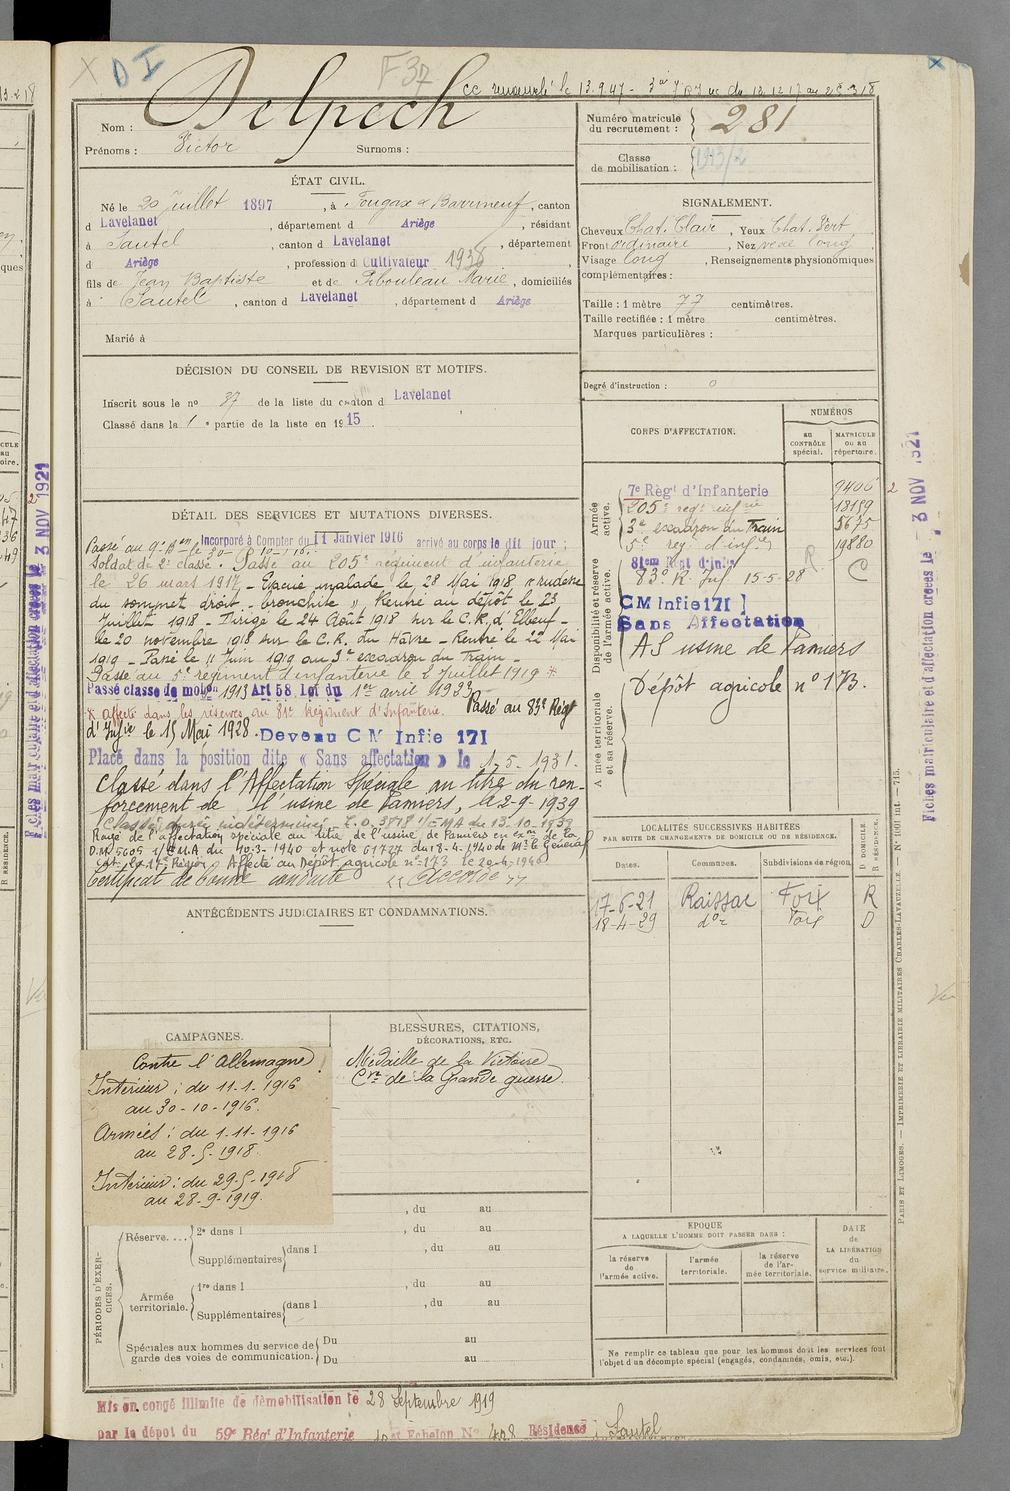 X D I
F 37
cc renouvelé le 13.9.47 - 3
Delpech
Nom :
Prénoms : Victor Surnoms :
Numéro matricule du recrutement : 281
Classe de mobilisation : 1913/2
ÉTAT CIVIL.
Né le 20 juillet 1897, à Fougax & Barrineuf, canton
d Lavelanet, département d Ariège, résidant
à Sautel, canton d Lavelanet, département
d Ariège, profession d Cultivateur 1938,
fils de Jean Baptiste et de Ribouleau Marie, domiciliés
à Sautel, canton d Lavelanet, département d Ariège
Marié à
SIGNALEMENT.
Cheveux Chat. Clair, Yeux Chat. Vert
Front ordinaire, Nez long
Visage long, Renseignements physionomiques
complémentaires :
Taille : 1 mètre 77 centimètres.
Taille rectifiée : 1 mètre centimètres.
Marques particulières :
Degré d'instruction : 0
DÉCISION DU CONSEIL DE REVISION ET MOTIFS.
Inscrit sous le no 37 de la liste du canton d Lavelanet
Classé dans la 1e partie de la liste en 1915.
CORPS D'AFFECTATION.
NUMÉROS
au CONTRÔLE spécial.
MATRICULE ou au répertoire.
Armée active.
7e Régt d'Infanterie 9406
205e reg. infrie 18159
3e escadron du Train 5675
5e reg. d'infie 19880
Disponibilité et réserve de l'armée active.
81em Régt d'infie
83e R. Inf. 15-5-28
R.
C
CM Infie 171
Sans Affectation
AS usine de Pamiers
Armée territoriale et sa réserve.
Dépôt agricole no 173.
DÉTAIL DES SERVICES ET MUTATIONS DIVERSES.
Incorporé à Compter du 11 Janvier 1916 arrivé au corps le dit jour ;
Passé au 9e Bon le 30-10-16.
Soldat de 2e classe. Passé au 205e régiment d'infanterie
le 26 mars 1917 - Evacué malade le 28 Mai 1918 « rudesse
du sommet droit - bronchite », Rentré au dépôt le 23
Juillet 1918 - Dirigé le 24 Août 1918 sur le C.R. d'Elbeuf -
le 20 novembre 1918 sur le C.R. du Hâvre - Rentré le 22 Mai
1919 - Passé le 11 Juin 1919 au 3e escadron du Train -
Passé au 5e régiment d'infanterie le 2 Juillet 1919 *
Passé classe de mobon 1913 Art 58 Loi du 1er avril 1923
* affecté dans les réserves au 81e Régiment d'Infanterie. Passé au 83e Régt
d'Infie le 15 Mai 1928. Devenu CM Infie 171
Placé dans la position dite « Sans affectation » le 1-5-1931.
Classé dans l'Affectation Spéciale au titre du ren-
forcement de l'usine de Pamiers, le 2-9-1939
Classé durée indéterminée - 1/EMA du 13.10.1939
Rayé de l'affectation spéciale au titre de l'usine de Pamiers en exon de la
D.M. 5605 1/EMA du 10-3-1940 et note 61727 du 18-4-1940 de Mr le Général
Cdt la 17e Région, Affecté au Dépôt agricole no 173 le 20-4-1940
Certificat de bonne conduite « Accordé »
ANTÉCÉDENTS JUDICIAIRES ET CONDAMNATIONS.
LOCALITÉS SUCCESSIVES HABITÉES
PAR SUITE DE CHANGEMENTS DE DOMICILE OU DE RÉSIDENCE.
Dates. Communes. Subdivisions de région. D DOMICILE. R RÉSIDENCE.
17-6-21 Raissac Foix R
18-4-29 do Foix D
CAMPAGNES.
Contre l'Allemagne
Intérieur : du 11-1-1916
au 30-10-1916.
Armées : du 1-11-1916
au 28-5-1918.
Intérieur : du 29-5-1918
au 28-9-1919
BLESSURES, CITATIONS,
DÉCORATIONS, ETC.
Médaille de la Victoire
Cve de la Grande guerre.
PÉRIODES D'EXERCICES.
, du au
Réserve.... 2e dans l , du au
Supplémentaires dans l , du au
Armée territoriale. 1re dans l , du au
Supplémentaires dans l , du au
Spéciales aux hommes du service de garde des voies de communication. Du au
Du au
EPOQUE
A LAQUELLE L'HOMME DOIT PASSER DANS :
la réserve de l'armée active.
l'armée territoriale.
la réserve de l'armée territoriale.
DATE DE LA LIBÉRATION du service militaire.
Ne remplir ce tableau que pour les hommes dont les services font
l'objet d'un décompte spécial (engagés, condamnés, omis, etc.).
Mis en congé illimité de démobilisation le 28 Septembre 1919
par le dépot du 59e Régt d'Infanterie Echelon No 428 Résidence Sautel
PARIS ET LIMOGES. — IMPRIMERIE ET LIBRAIRIE MILITAIRES CHARLES-LAVAUZELLE. — No 1601 int. — 715.
Fiches matriculaire et d'affectation créées le 3 NOV 1921
Fiches matriculaire et d'affectation créées le 3 NOV 1921